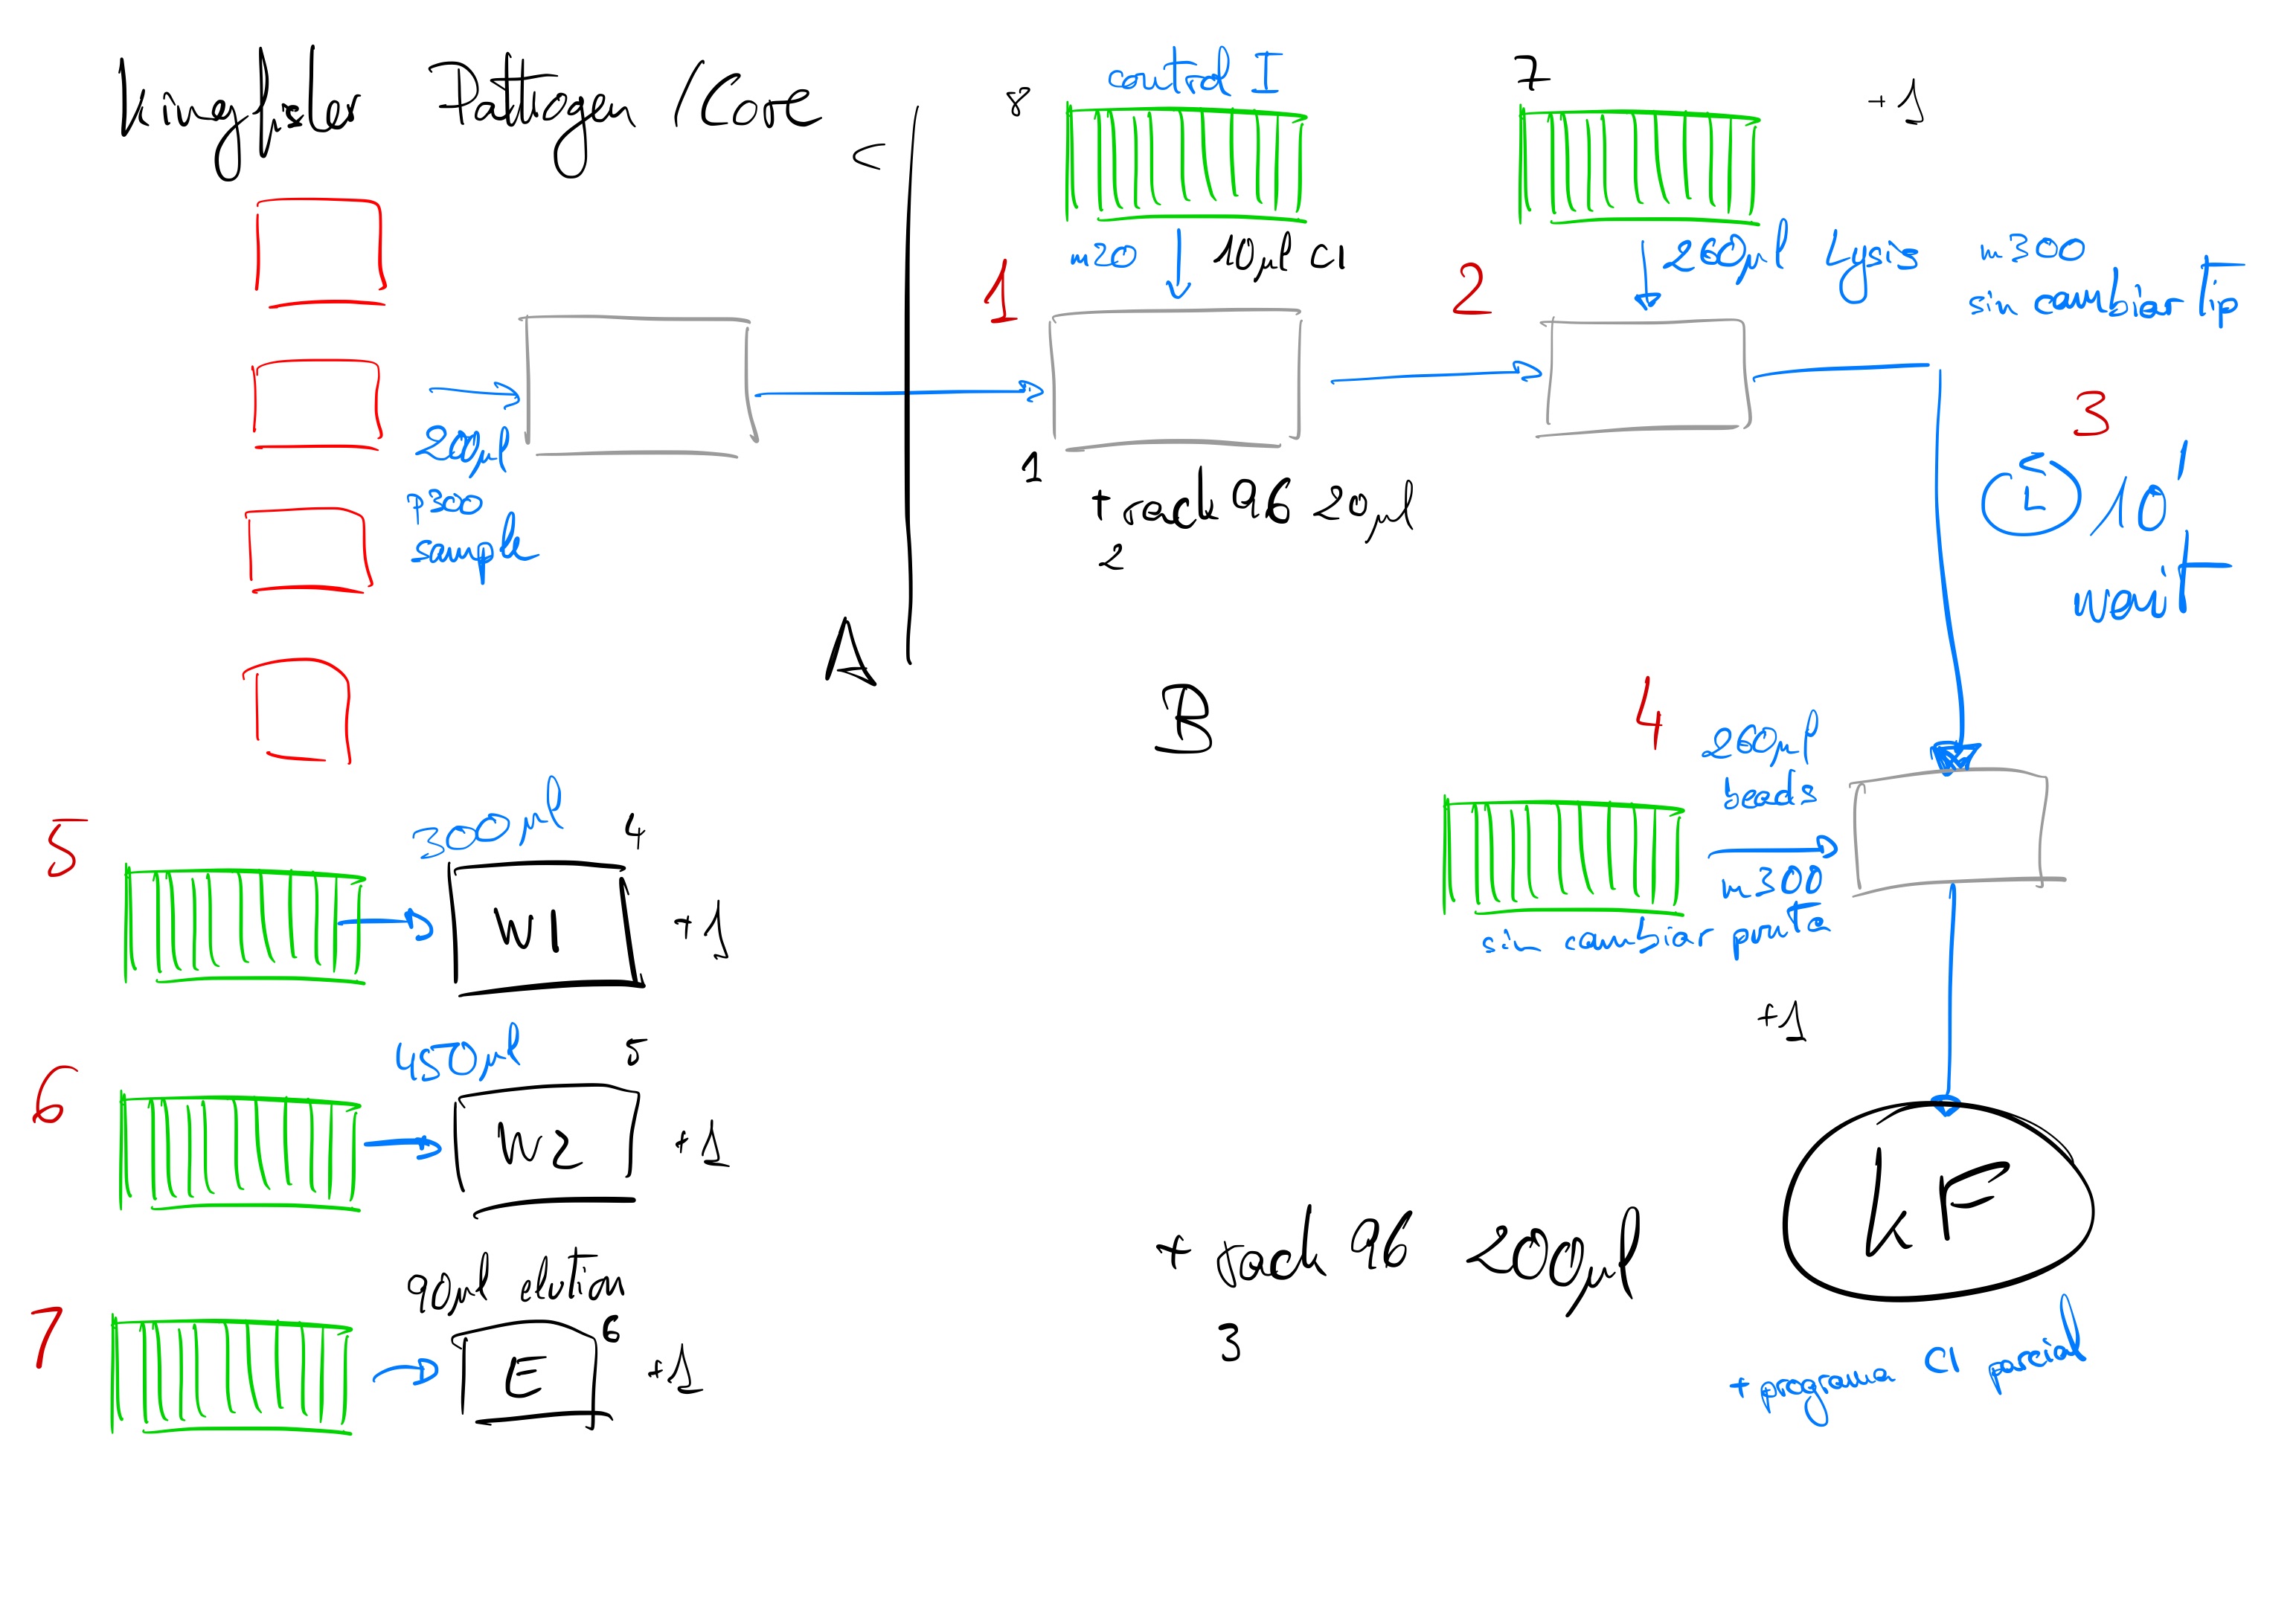 Kingfisher Pathogen / Core
A
200µl
P300
sample
8
control I
m20
10µl CI
1
1
+ rack 96 20µl
2
7
+1
260µl Lysis
m300
sin cambiar tip
2
3
10'
wait
B
4
260µl
beads
m300
sin cambiar punta
+1
KF
+ programa CI parcial
5
300µl
4
W1
+1
6
450µl
5
W2
+1
7
90µl elution
6
E
+1
+ rack 96 200µl
3